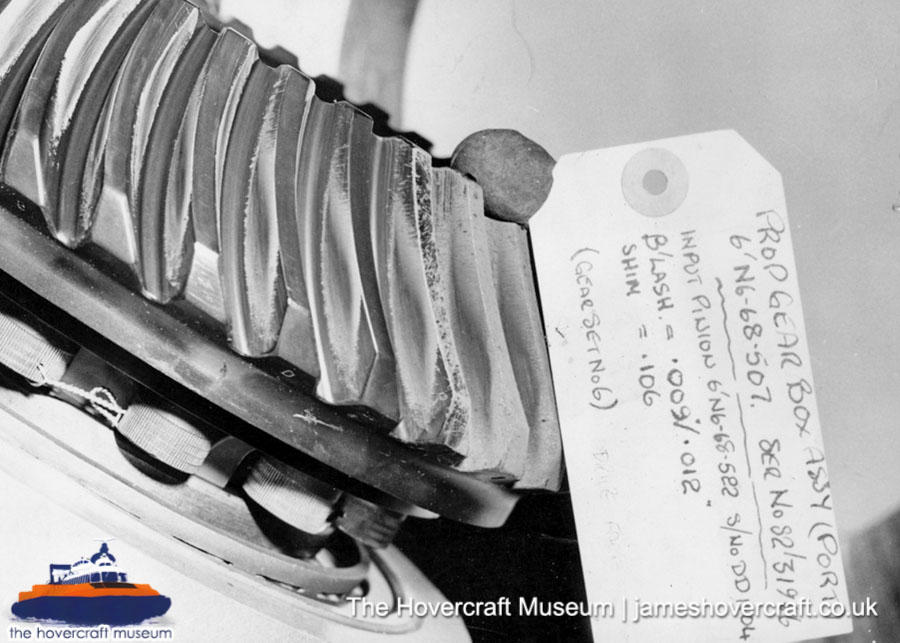 PROP GEAR BOX ASSY (PORT
6'N6-68-507. SER No S2/3197/66
INPUT PINION 6'N6-68-522 S/No DD1004
B/LASH. = .009"/.012"
SHIM = .106
(GEAR SET No 6)
the hovercraft museum
The Hovercraft Museum | jameshovercraft.co.uk